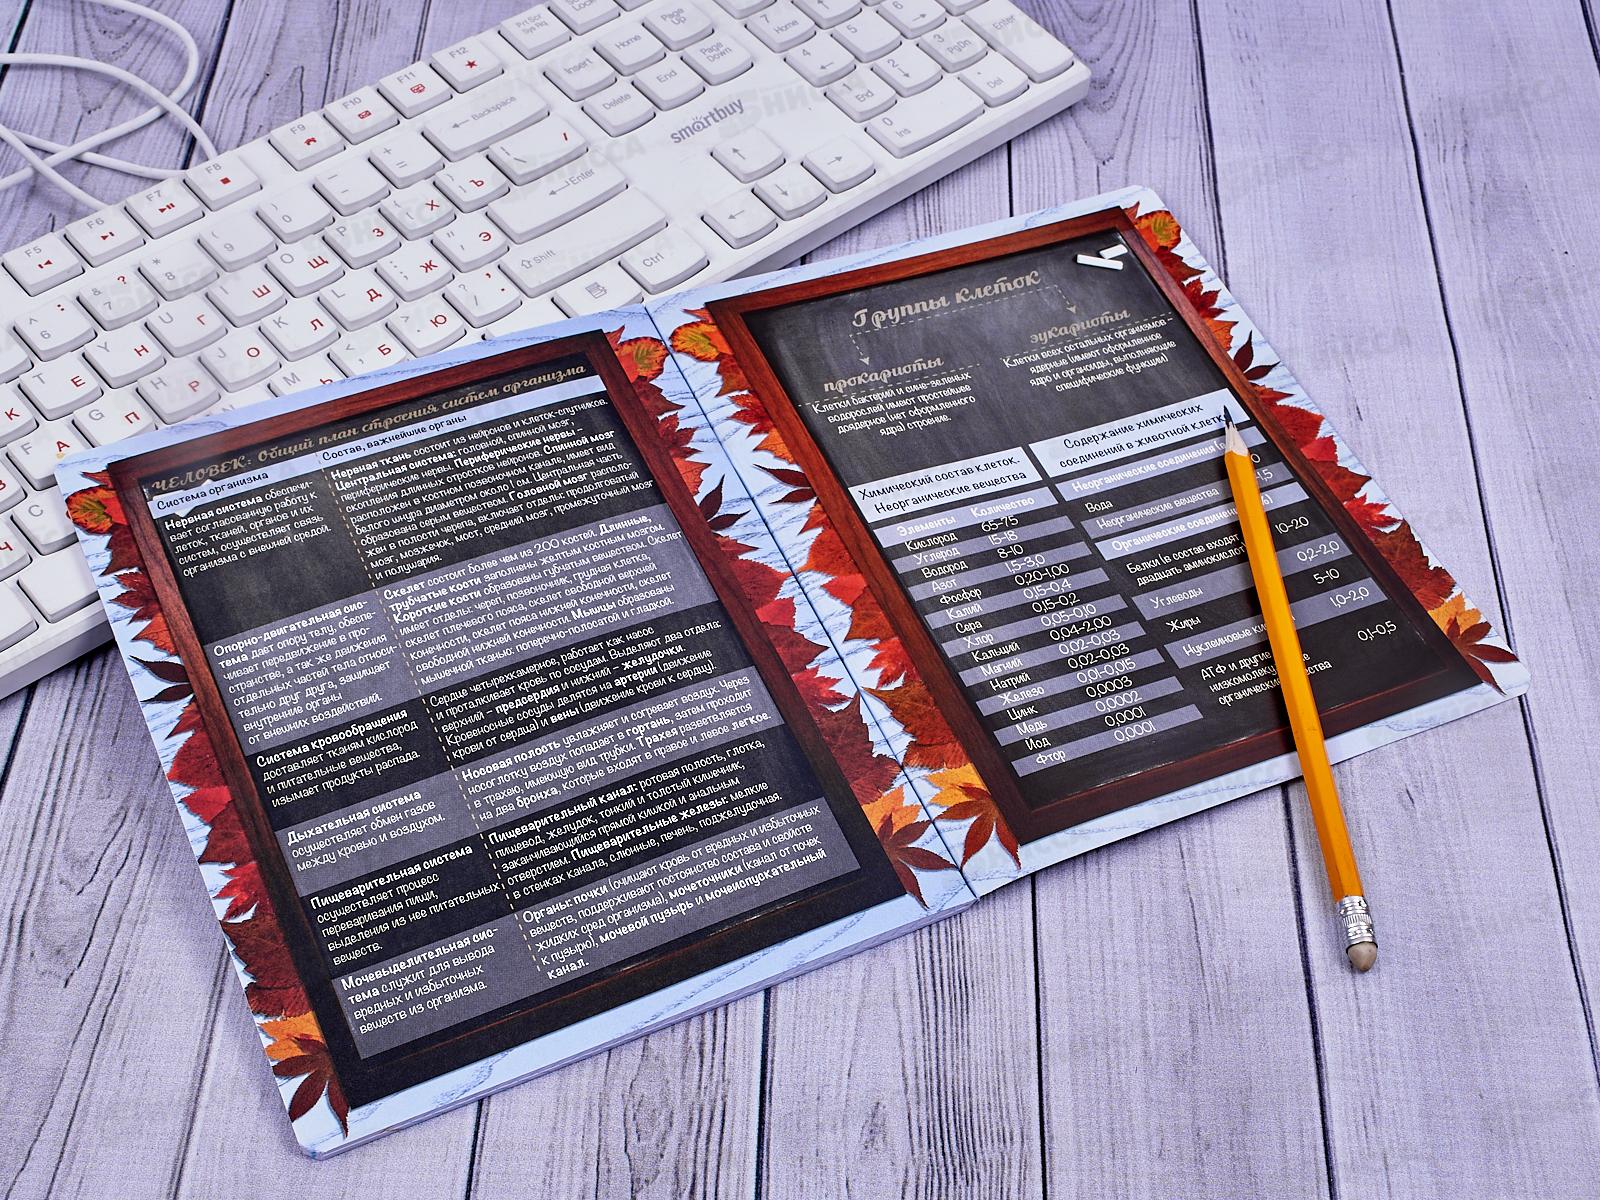 ЧЕЛОВЕК: Общий план строения систем организма
Система организма
Состав, важнейшие органы
Нервная система обеспечи-
вает согласованную работу к
леток, тканей, органов и их
систем, осуществляет связь
организма с внешней средой.
Нервная ткань состоит из нейронов и клеток-спутников.
Центральная система: головной, спинной мозг,
периферические нервы. Периферические нервы –
скопления длинных отростков нейронов. Спинной мозг
расположен в костном позвоночном канале, имеет вид
белого шнура диаметром около 1 см. Центральная часть
образована серым веществом. Головной мозг располо-
жен в полости черепа, включает отделы: продолговатый
мозг, мозжечок, мост, средний мозг, промежуточный мозг
и полушария.
Опорно-двигательная сис-
тема дает опору телу, обеспе-
чивает передвижение в прос-
странстве, а так же движения
отдельных частей тела относи-
тельно друг друга, защищает
внутренние органы
от внешних воздействий.
Скелет состоит более чем из 200 костей. Длинные,
трубчатые кости заполнены желтым костным мозгом.
Короткие кости образованы губчатым веществом. Скелет
имеет отделы: череп, позвоночник, грудная клетка,
скелет плечевого пояса, скелет свободной верхней
конечности, скелет пояса нижней конечности, скелет
свободной нижней конечности. Мышцы образованы
мышечной тканью: поперечно-полосатой и гладкой.
Система кровообращения
доставляет тканям кислород
и питательные вещества,
изымает продукты распада.
Сердце четырехкамерное, работает как насос
и проталкивает кровь по сосудам. Выделяют два отдела:
верхний – предсердия и нижний – желудочки.
Кровеносные сосуды делятся на артерии (движение
крови от сердца) и вены (движение крови к сердцу).
Дыхательная система
осуществляет обмен газов
между кровью и воздухом.
Носовая полость увлажняет и согревает воздух. Через
носоглотку воздух попадает в гортань, затем проходит
в трахею, имеющую вид трубки. Трахея разветвляется
на два бронха, которые входят в правое и левое легкое.
Пищеварительная система
осуществляет процесс
переваривания пищи,
выделения из нее питательных
веществ.
Пищеварительный канал: ротовая полость, глотка,
пищевод, желудок, тонкий и толстый кишечник,
заканчивающийся прямой кишкой и анальным
отверстием. Пищеварительные железы: мелкие
в стенках канала, слюнные, печень, поджелудочная.
Мочевыделительная сис-
тема служит для вывода
вредных и избыточных
веществ из организма.
Органы: почки (очищают кровь от вредных и избыточных
веществ, поддерживают постоянство состава и свойств
жидких сред организма), мочеточники (канал от почек
к пузырю), мочевой пузырь и мочеиспускательный
канал.
Группы клеток
прокариоты
Клетки бактерий и сине-зеленых
водорослей имеют простейшее
доядерное (нет оформленного
ядра) строение.
эукариоты
Клетки всех остальных организмов –
ядерные (имеют оформленное
ядро и органоиды, выполняющие
специфические функции)
Химический состав клеток.
Неорганические вещества
Элементы Количество
Кислород 65-75
Углерод 15-18
Водород 8-10
Азот 1,5-3,0
Фосфор 0,20-1,00
Калий 0,15-0,4
Сера 0,15-0,2
Хлор 0,05-0,10
Кальций 0,04-2,00
Магний 0,02-0,03
Натрий 0,02-0,03
Железо 0,01-0,015
Цинк 0,0003
Медь 0,0002
Йод 0,0001
Фтор 0,0001
Содержание химических
соединений в животной клетке
Неорганические соединения
Вода
Неорганические вещества
Органические соединения
Белки (в состав входят 10-20
двадцать аминокислот)
0,2-2,0
Углеводы
Жиры 5-10
Нуклеиновые 1,0-2,0
АТФ и другие 0,1-0,5
низкомолекулярные
органические вещества
smartbuy
F5
F6
F7
F8
F9
F10
F11
F12
Prt Scr
Sys Rq
Insert
Home
Page Up
Delete
End
Page Down
Backspace
Enter
Shift
Ctrl
7 Home
4
1 End
0 Ins
3 PgDn
Del
Enter